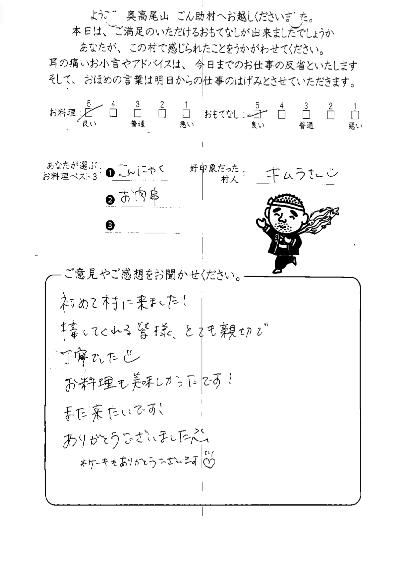 ようこそ 奥高尾山 ごん助村へお越しくださいました。
本日は、ご満足のいただけるおもてなしが出来ましたでしょうか
あなたが、この村で感じられたことをうかがわせてください。
耳の痛いお小言やアドバイスは、今日までのお仕事の反省といたします
そして、おほめの言葉は明日からの仕事のはげみとさせていただきます。
お料理: 5 4 3 2 1 おもてなし: 5 4 3 2 1
良い 普通 悪い 良い 普通 悪い
あなたが選ぶ お料理ベスト3: ❶ こんにゃく 好印象だった 村人: キムラさん
❷ お肉
❸
ご意見やご感想をお聞かせください。
初めて村に来ました!
接してくれる皆様、とても親切で
ご寧でした
お料理も美味しかったです!
また来たいです!
ありがとうございました
ケーキもありがとうございます♡